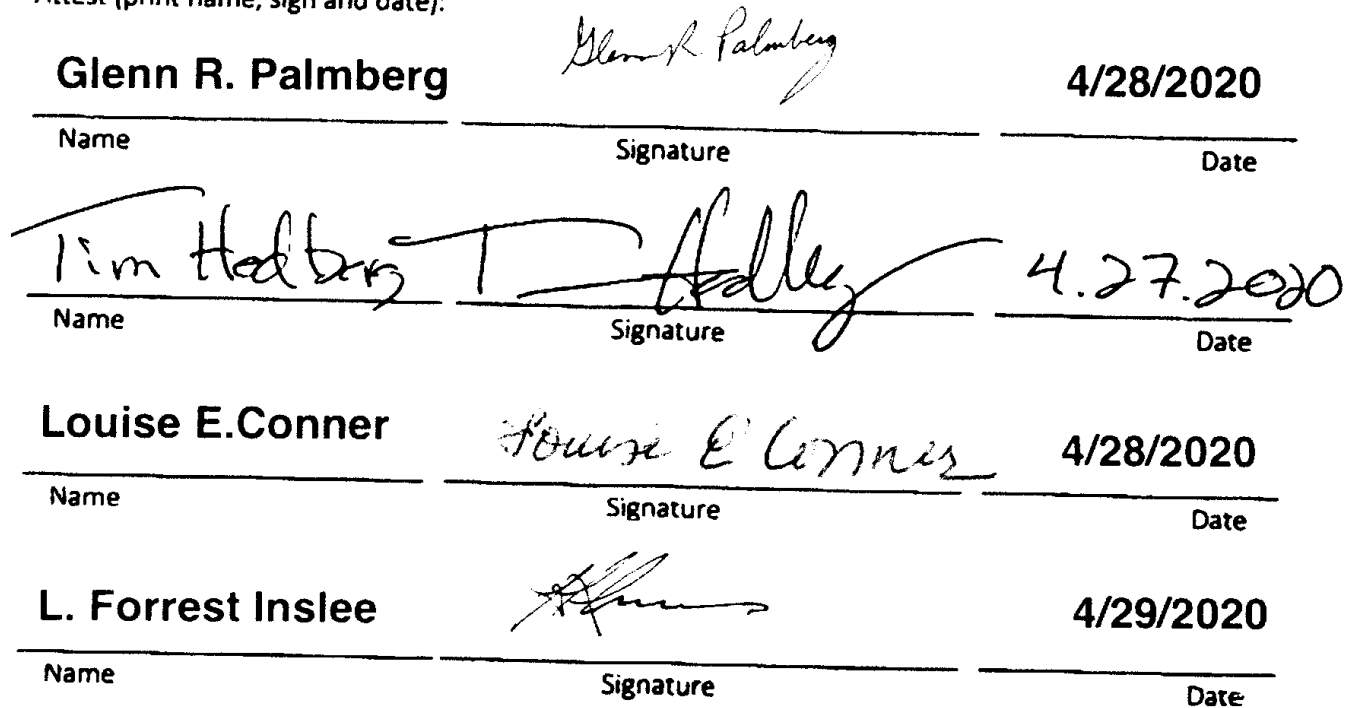 Attest (print name, sign and date):
Glenn R. Palmberg Glenn R Palmberg 4/28/2020
Name Signature Date
Tim Hedberg T Hedberg 4.27.2020
Name Signature Date
Louise E.Conner Louise E Conner 4/28/2020
Name Signature Date
L. Forrest Inslee 4/29/2020
Name Signature Date